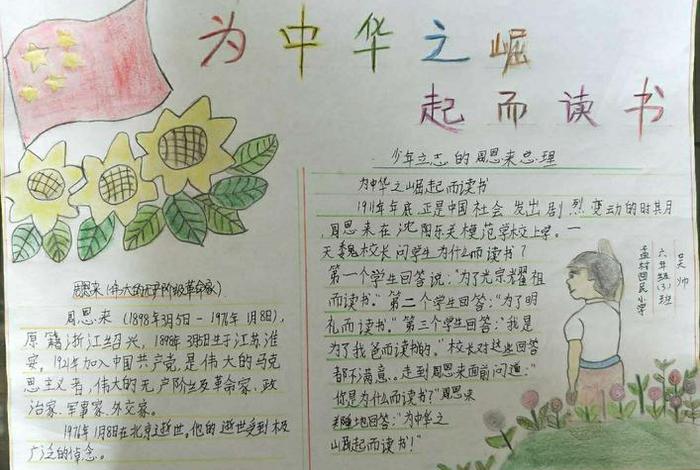 为中华之崛
起而读书
少年立志的周恩来总理
为中华之崛起而读书
1911年年底正是中国社会发出剧烈变动的时其月
周恩来在沈阳东关模范学校上学。一
天魏校长问学生为什么而读书？
第一个学生回答说："为了光宗耀祖
而读书。"第二个学生回答："为了明
礼而读书。"第三个学生回答："我是
为了我爸而读书的。"校长对这些回答
都不满意。走到周恩来面前问道："
你是为什么而读书？"周恩来
地回答："为中华之
崛起而读书！"
吴帅
六年级(3)班
孟村回民小学
周恩来(伟大的无产阶级革命家)
周恩来(1898年3月5日-1976年1月8日),
原籍浙江绍兴，1898年3月5日生于江苏淮
安。1921年加入中国共产党，是伟大的马克
思主义者，伟大的无产阶级革命家、政
治家、军事家、外交家。
1976年1月8日在北京逝世。他的逝世受到极
广泛的悼念。